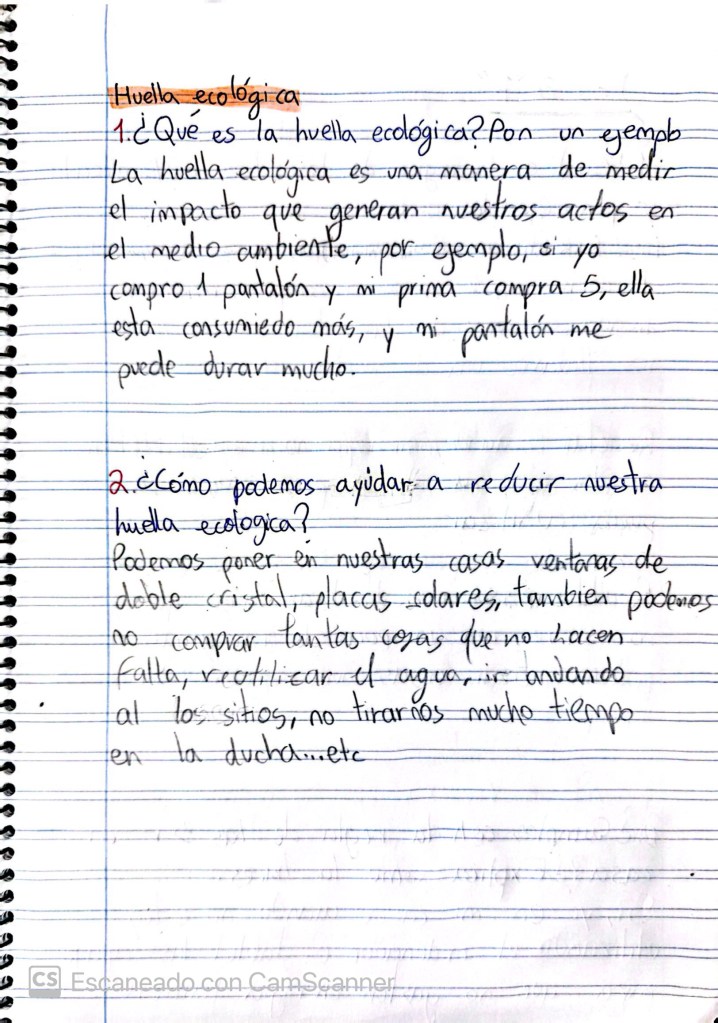 Huella ecológica
1.¿Qué es la huella ecológica? Pon un ejemplo
La huella ecológica es una manera de medir
el impacto que generan nuestros actos en
el medio ambiente, por ejemplo, si yo
compro 1 pantalón y mi prima compra 5, ella
esta consumiedo más, y mi pantalón me
puede durar mucho.
2.¿Cómo podemos ayudar a reducir nuestra
huella ecologica?
Podemos poner en nuestras casas ventanas de
doble cristal, placas solares, tambien podemos
no comprar tantas cosas que no hacen
falta, reutilizar el agua, ir andando
al los sitios, no tirarnos mucho tiempo
en la ducha...etc
CS Escaneado con CamScanner